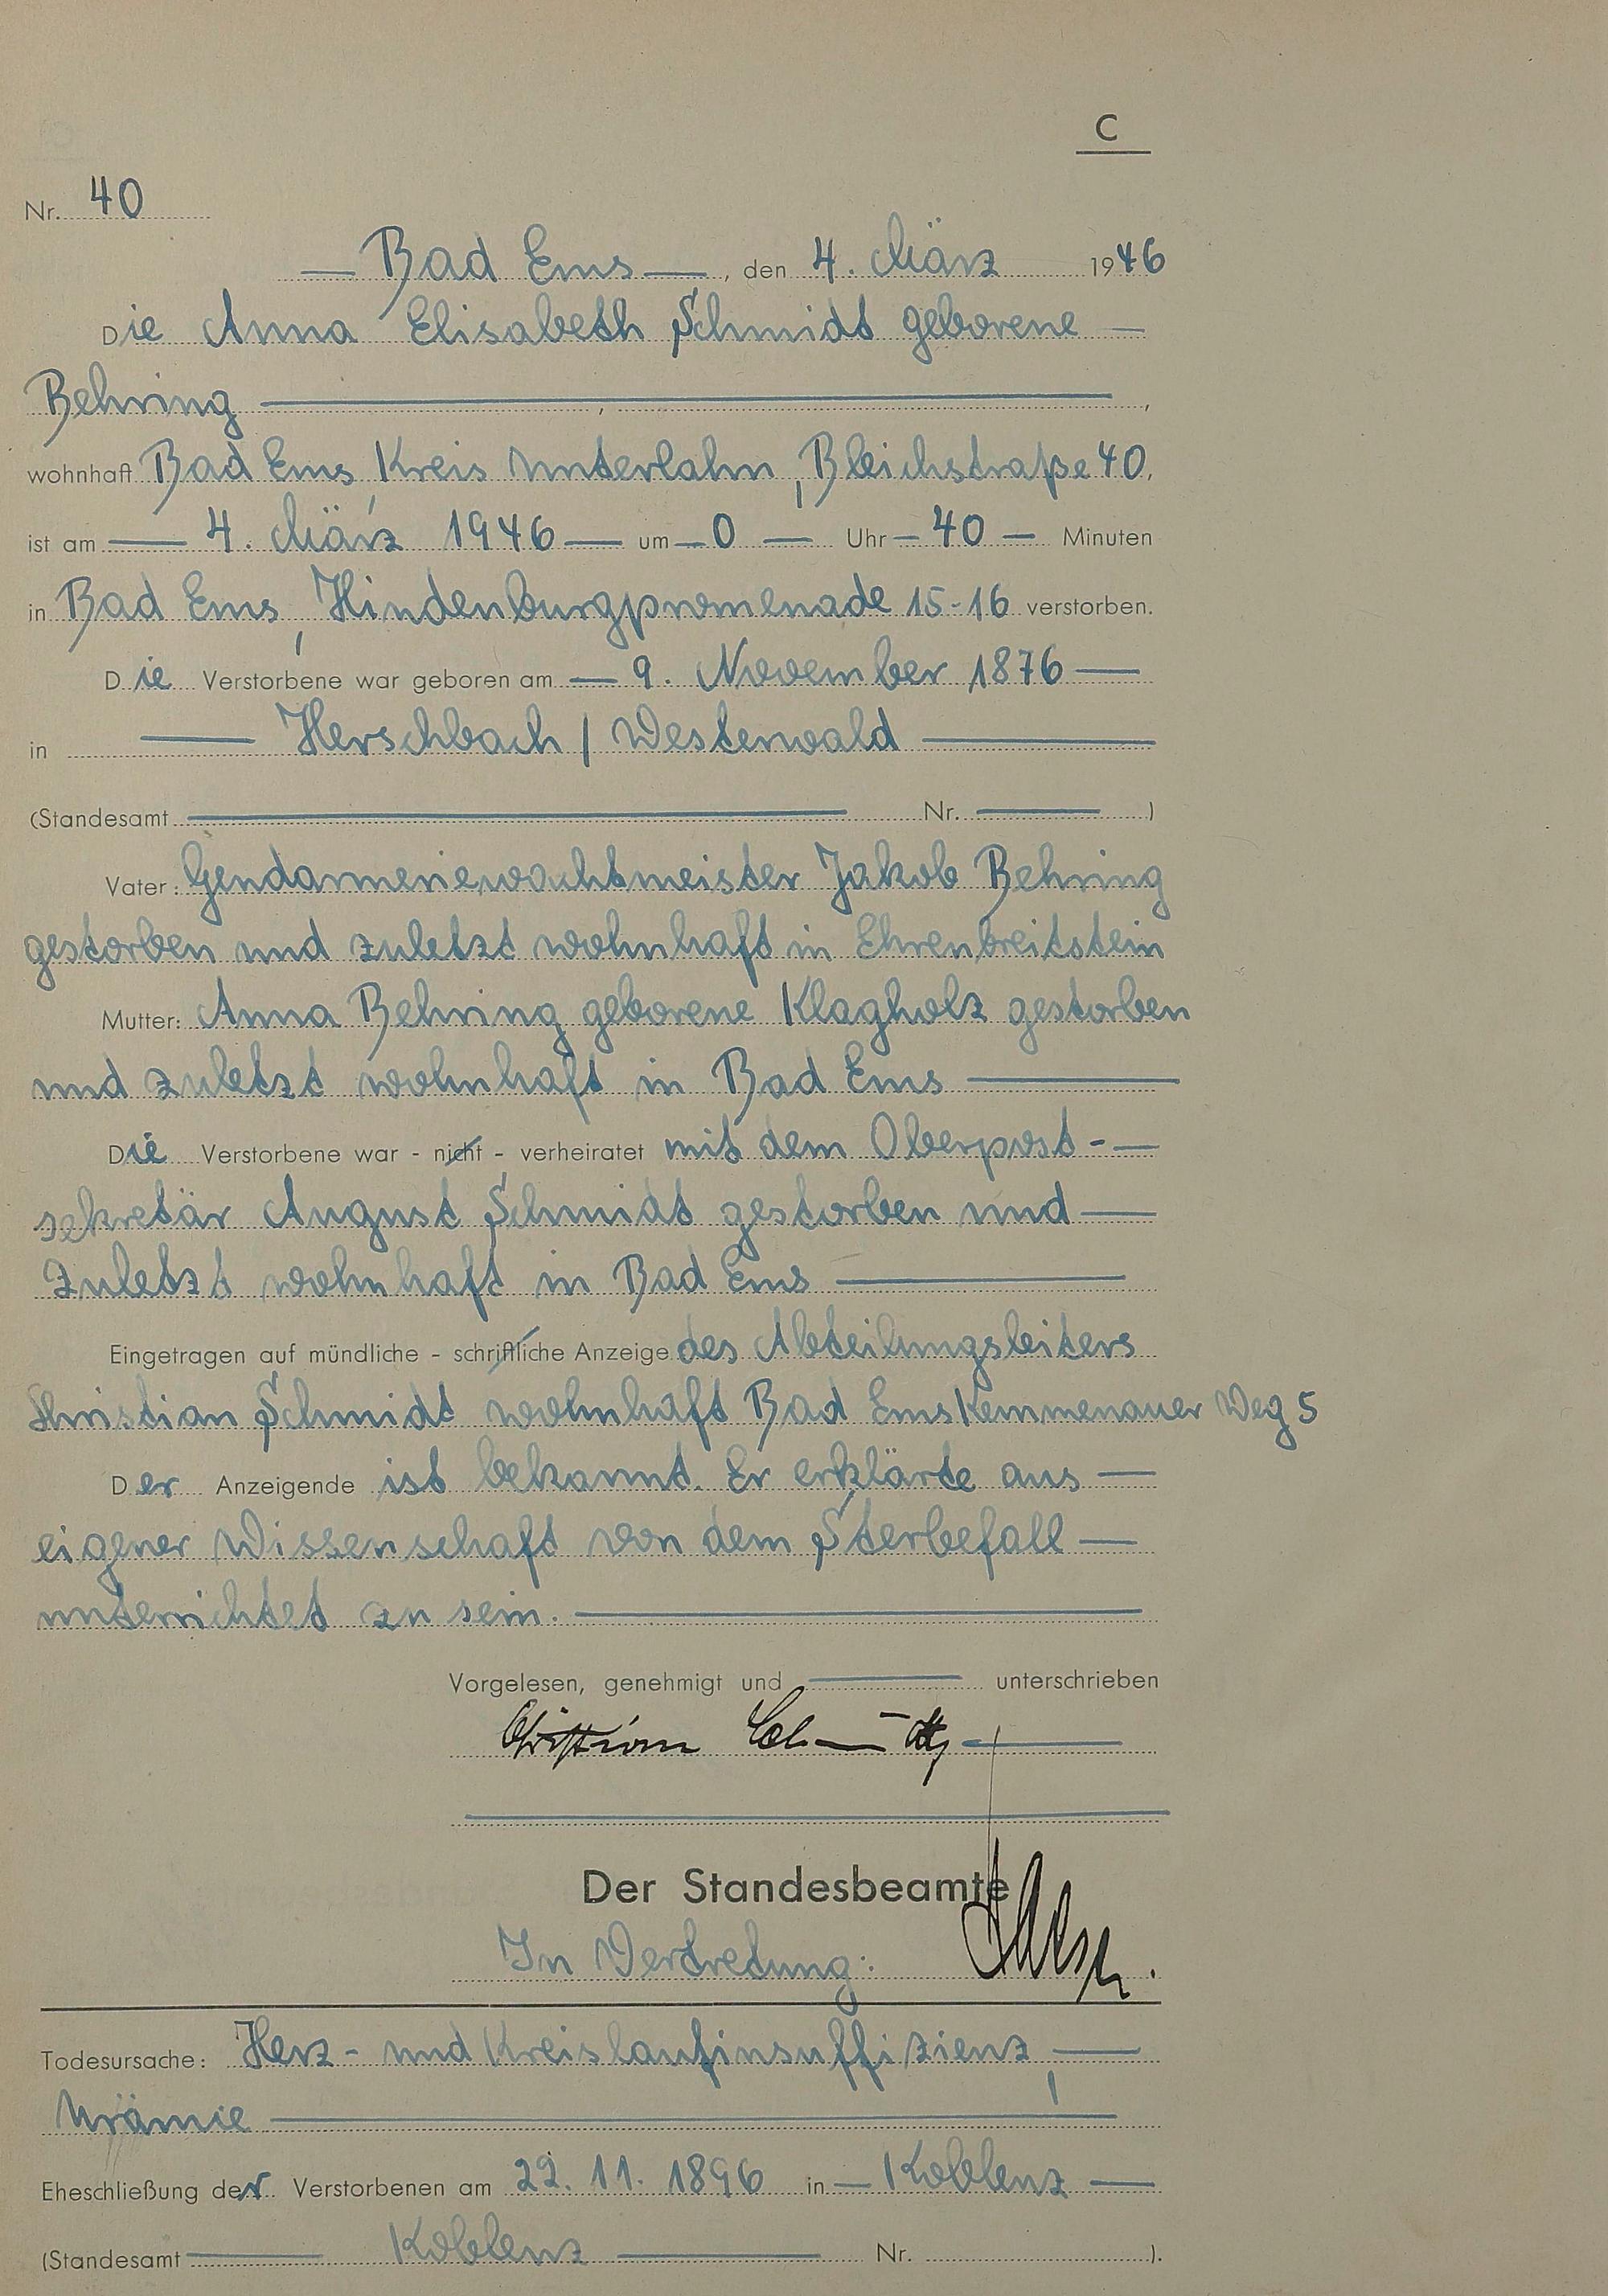 C
Nr. 40
— Bad Ems —, den 4. März 1946
Die Anna Elisabeth Schmidt geborene —
Behring —,
wohnhaft Bad Ems Kreis Unterlahn, Bleichstraße 40,
ist am — 4. März 1946 — um — 0 — Uhr — 40 — Minuten
in Bad Ems, Hindenburgpromenade 15-16 verstorben.
Die Verstorbene war geboren am — 9. November 1876 —
in — Herschbach / Westerwald —
(Standesamt — Nr. — )
Vater: Gendarmeriewachtmeister Jakob Behring
gestorben und zuletzt wohnhaft in Ehrenbreitstein
Mutter: Anna Behring geborene Klagholz gestorben
und zuletzt wohnhaft in Bad Ems —
Die Verstorbene war - nicht - verheiratet mit dem Oberpost- —
sekretär August Schmidt gestorben und —
zuletzt wohnhaft in Bad Ems —
Eingetragen auf mündliche - schriftliche Anzeige des Abteilungsleiters
Christian Schmidt wohnhaft Bad Ems Kemmenauer Weg 5
Der Anzeigende ist bekannt. Er erklärte aus —
eigener Wissenschaft von dem Sterbefall —
unterrichtet zu sein. —
Vorgelesen, genehmigt und — unterschrieben
Christian Schmidt —
Der Standesbeamte
In Vertretung:
Todesursache: Herz- und Kreislaufinsuffizienz, —
Urämie —
Eheschließung der Verstorbenen am 22. 11. 1896 in — Koblenz —
(Standesamt — Koblenz — Nr. ).